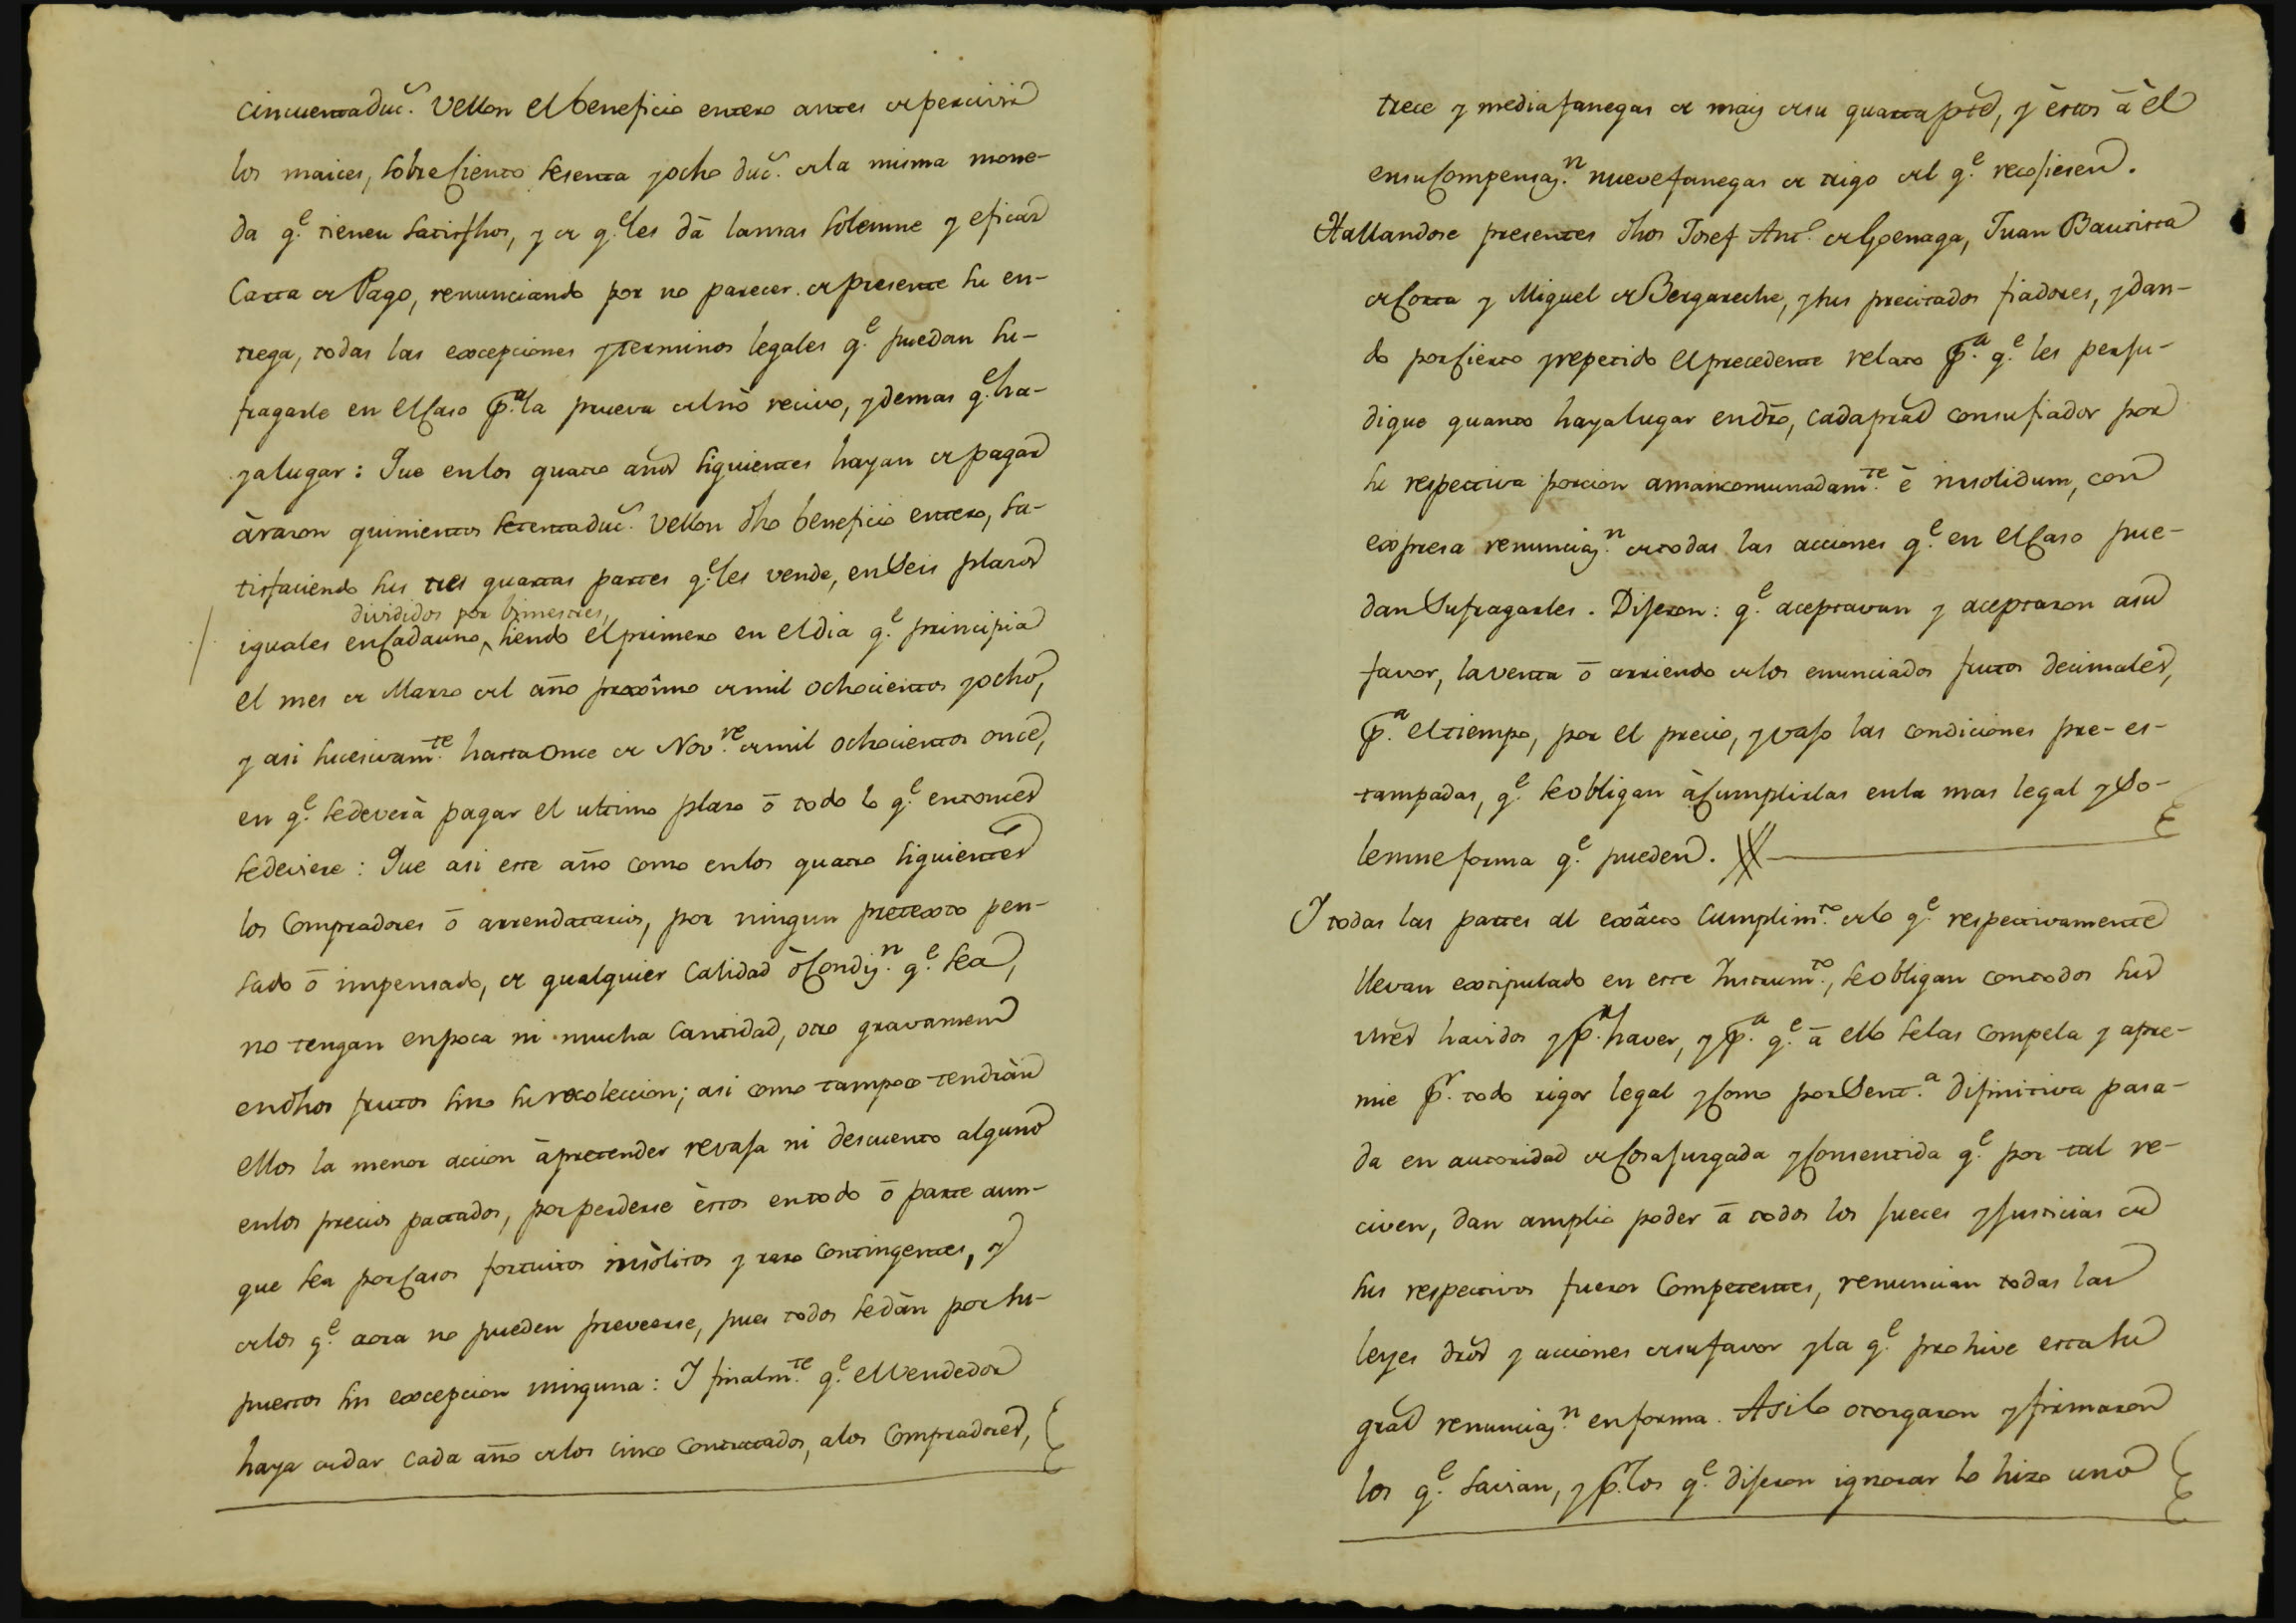 cincuenta duc.s vellon el beneficio entero antes de percivir
los maices, sobre ciento sesenta y ocho duc.s de la misma mone-
da q.e tienen satisfhos, y de q.e les dà la mas solemne y eficaz
Carta de Pago, renunciando por no parecer de presente su en-
trega, todas las excepciones y terminos legales q.e puedan su-
fragarle en el caso p.a la prueva del nò recivo, y demas q.e ha-
ya lugar: Que en los quatro años siguientes hayan de pagar
à razon quinientos setenta duc.s vellon dho beneficio entero, sa-
tisfaciendo sus tres quartas partes q.e les vende, en seis plazos
divididos por bimestres,
iguales en cada uno, siendo el primero en el dia q.e principia
el mes de Marzo del año proxîmo de mil ochocientos y ocho,
y asi sucesivam.te hasta once de Nov.re de mil ochocientos once,
en q.e se deverà pagar el ultimo plazo ô todo lo q.e entonces
se deviere: Que asi este año como en los quatro siguientes
los Compradores ô arrendatarios, por ningun pretexto pen-
sado ô impensado, de qualquier calidad ô condiz.n q.e sea,
no tengan en poca ni mucha cantidad, otro gravamen
en dhos frutos sino su recoleccion; asi como tampoco tendràn
ellos la menor accion à pretender revaja ni descuento alguno
en los precios pactados, por perderse èstos en todo ô parte aun-
que sea por casos fortuitos insòlitos y raro contingentes, y
de los q.e aora no pueden preveerse, pues todos se dàn por su-
puestos sin excepcion ninguna: Y finalm.te q.e el Vendedor
haya de dar cada año de los cinco contratados, a los Compradores,
trece y media fanegas de maiz de su quarta pte, y èstos â èl
en su compensaz.n nueve fanegas de trigo del q.e recojieren.
Hallandose presentes dhos Josef Ant.o de Goenaga, Juan Bautista
de Corta y Miguel de Bergareche, y sus precitados fiadores, y dan-
do por cierto y repetido el precedente relato p.a q.e les perju-
dique quanto haya lugar en dro, cada pral con su fiador por
su respectiva porcion amancomunadam.te è insolidum, con
expresa renunciaz.n de todas las acciones q.e en el caso pue-
dan sufragarles. Dijeron: q.e aceptavan y aceptaron a su
favor, la venta ô arriendo de los enunciados frutos decimales,
p.a el tiempo, por el precio, y vajo las condiciones pre-es-
tampadas, q.e se obligan à cumplirlas en la mas legal y so-
lemne forma q.e pueden.
Y todas las partes al exâcto cumplim.to de lo q.e respectivamente
llevan extipulado en este Instrum.to, se obligan con todos sus
vnes havidos y p.r haver, y p.a q.e â ello se las compela y apre-
mie p.r todo rigor legal y como por Sent.a difinitiva pasa-
da en autoridad de Cosa juzgada y consentida q.e por tal re-
civen, dan amplio poder â todos los jueces y justicias de
sus respectivos fueros competentes, renuncian todas las
leyes dros y acciones de su favor y la q.e prohive esta su
gral renunciaz.n en forma. Asi lo otorgaron y firmaron
los q.e savian, y p.r los q.e dijeron ignorar lo hizo uno